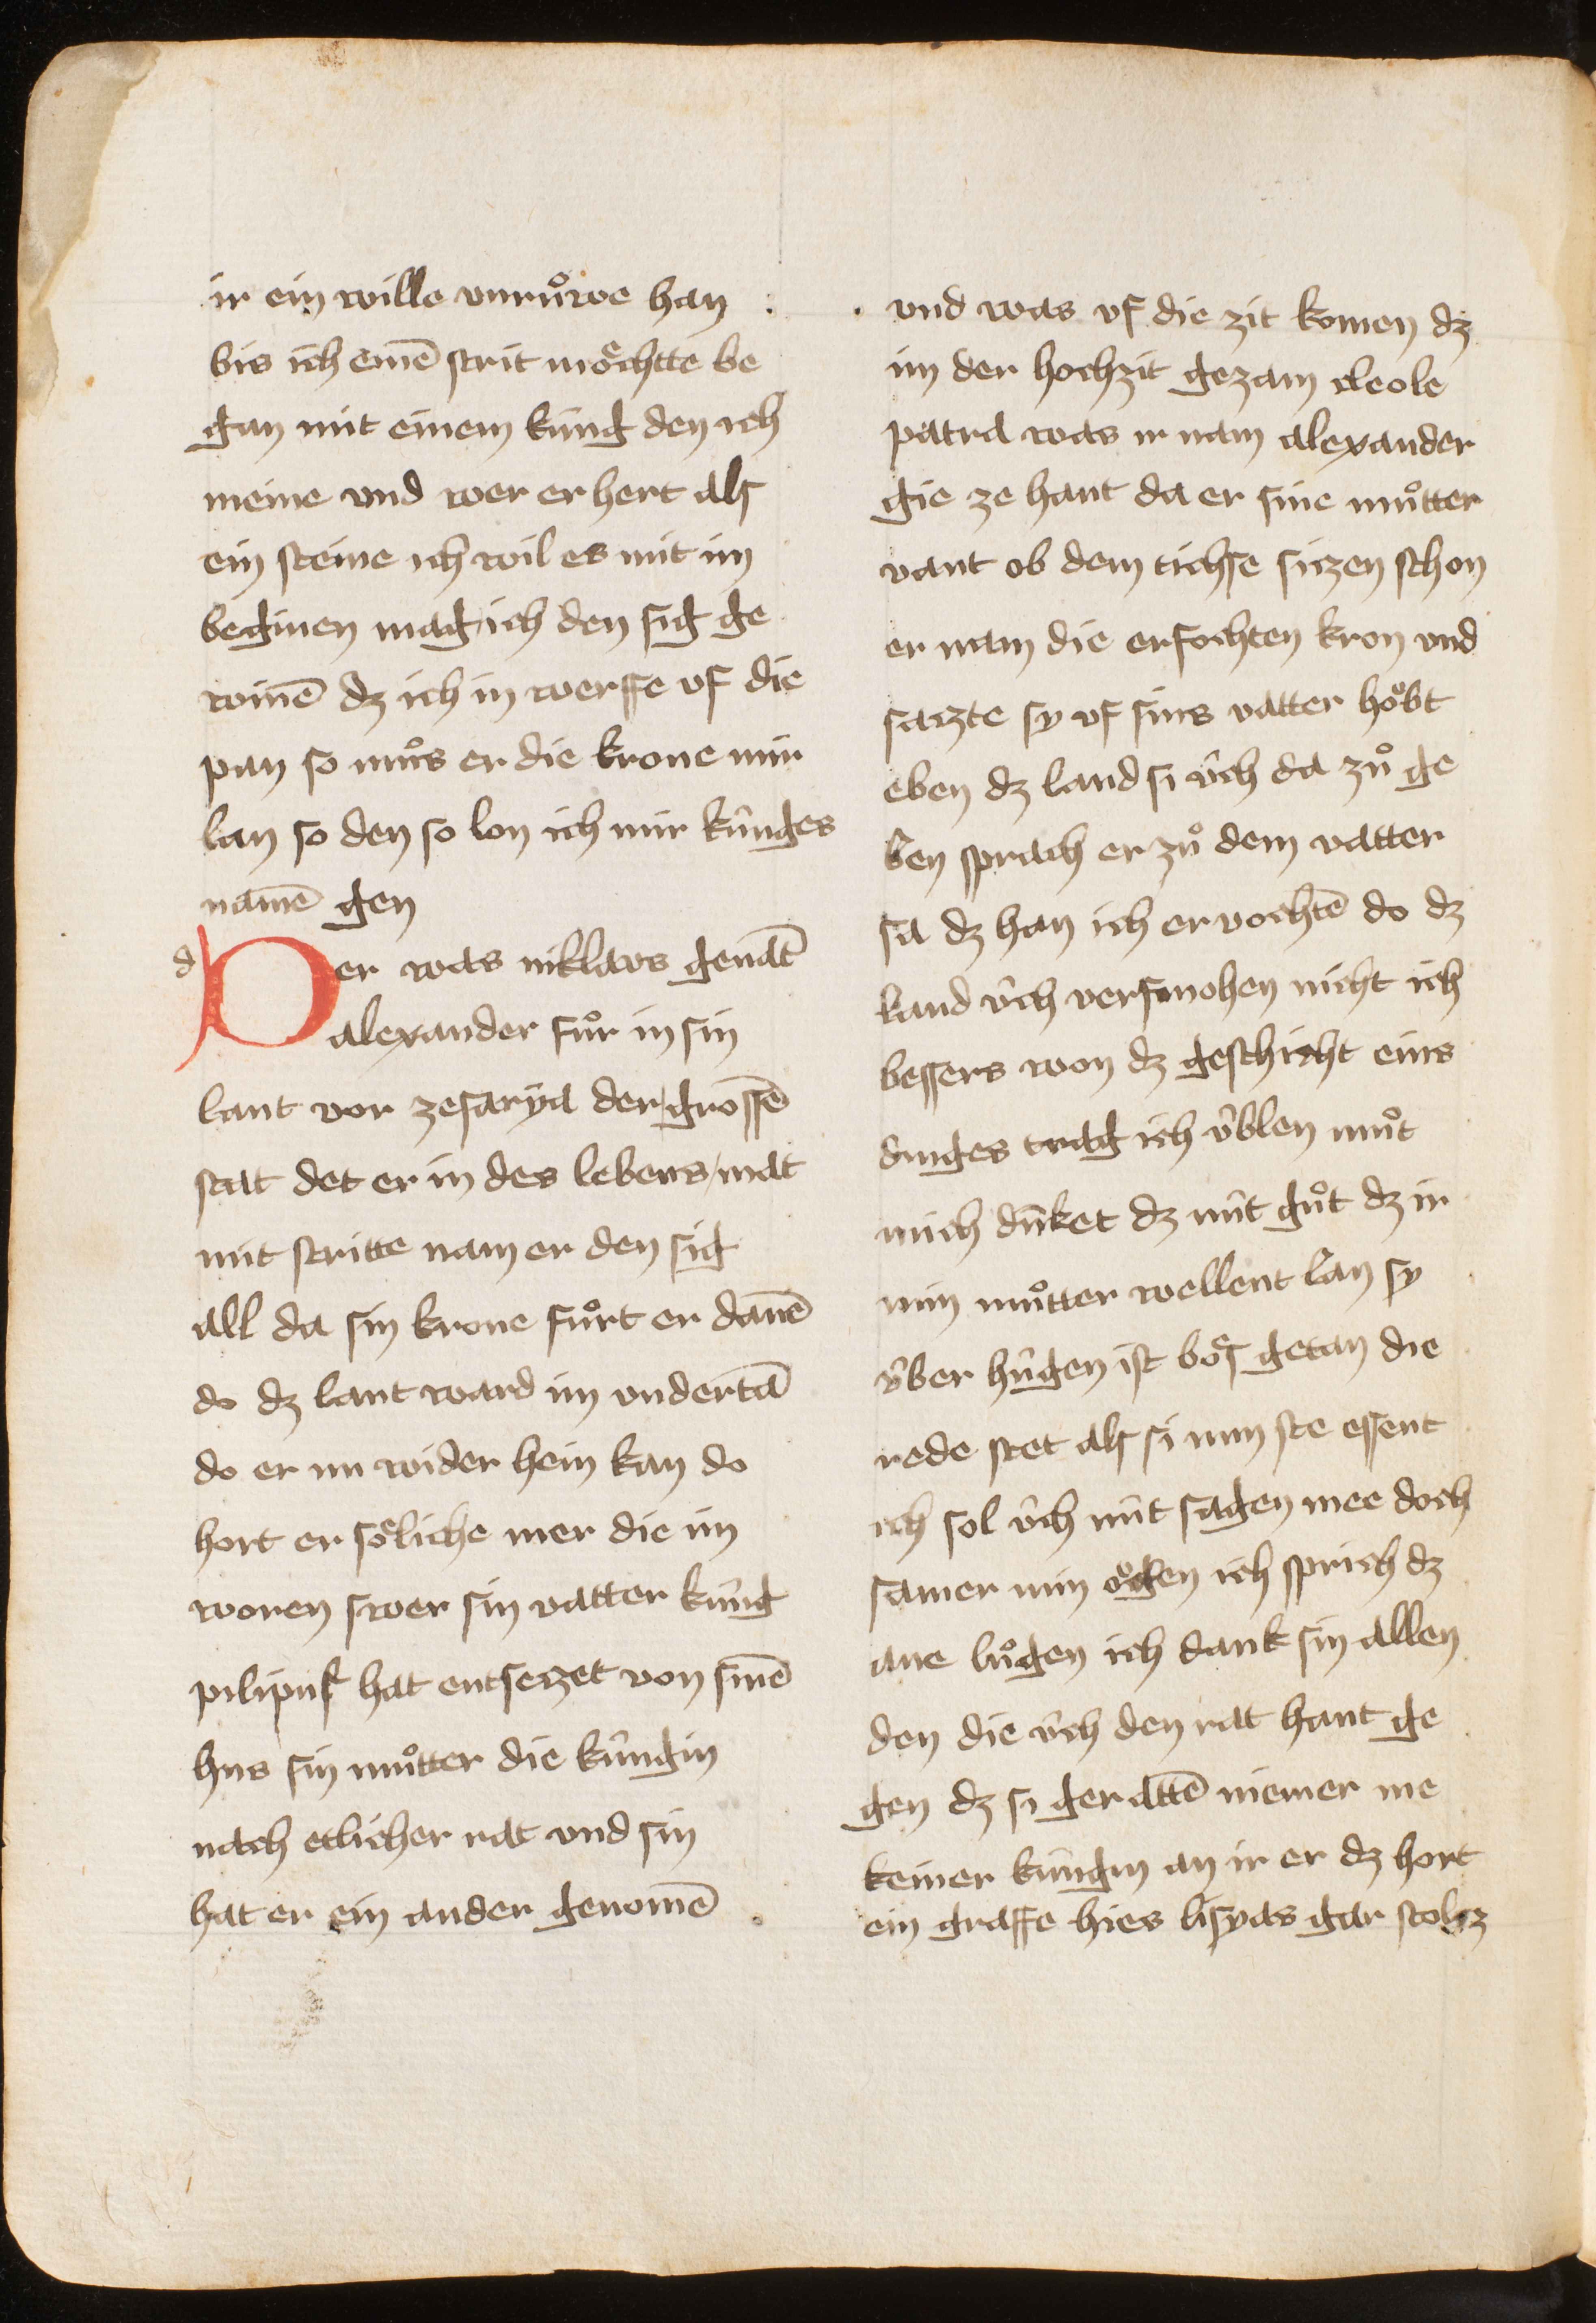 ir ein wille vnruͦwe han
bis ich einē strit moͤchtte be
gan mit einem kúng den ich
meine vnd wer er hert als
ein steine ich wil es mit im
beginen mag ich den sig ge
winē dz ich in werffe vf die
pan so muͦs er die krone mir
lan so den so lon ich mir kúnges
namē gen
d
Der was niklaws genāt
alexander fuͦr in sin
lant vor zesarÿa der grossē
stat det er in des lebens mat
mit stritte nam er den sig
all da sin krone fuͦrt er danē
do dz lant ward im vndertā
do er nu wider hein kan do
hort er soͤliche mer die im
woren swer sin vatter kúng
pilipus hat entseczet von sinē
hus sin muͦtter die kúngin
nach etlicher rat vnd sin
hat er ein ander genomē
vnd was vf die zit komen dz
im der hochzit gezam cleole
patra was ir nam alexander
gie ze hant da er sine muͦtter
vant ob dem tichse siczen schon
er nam die erfochten kron vnd
saczte sy vf sins vatter hoͮbt
eben dz land si v́ch da zuͦ ge
ben sprach er zuͦ dem vatter
sa dz han ich ervochtē do dz
land v́ch versmohen nicht ich
bessers won dz geschicht eins
dinges trag ich v́blen muͦt
mich dúnket dz nút guͦt dz ir
min muͦtter wellent lan sy
v́ber húgen ist boͤs getan die
rede stet als si nun ste essent
ich sol v́ch nút sagen mee doch
samer min oͮgen ich sprich dz
ane luͦgen ich dank sin allen
den die v́ch den rat hant ge
gen dz si gerattē niemer me
keiner kúngin an ir er dz hort
ein graffe hies lisyas gar stolcz